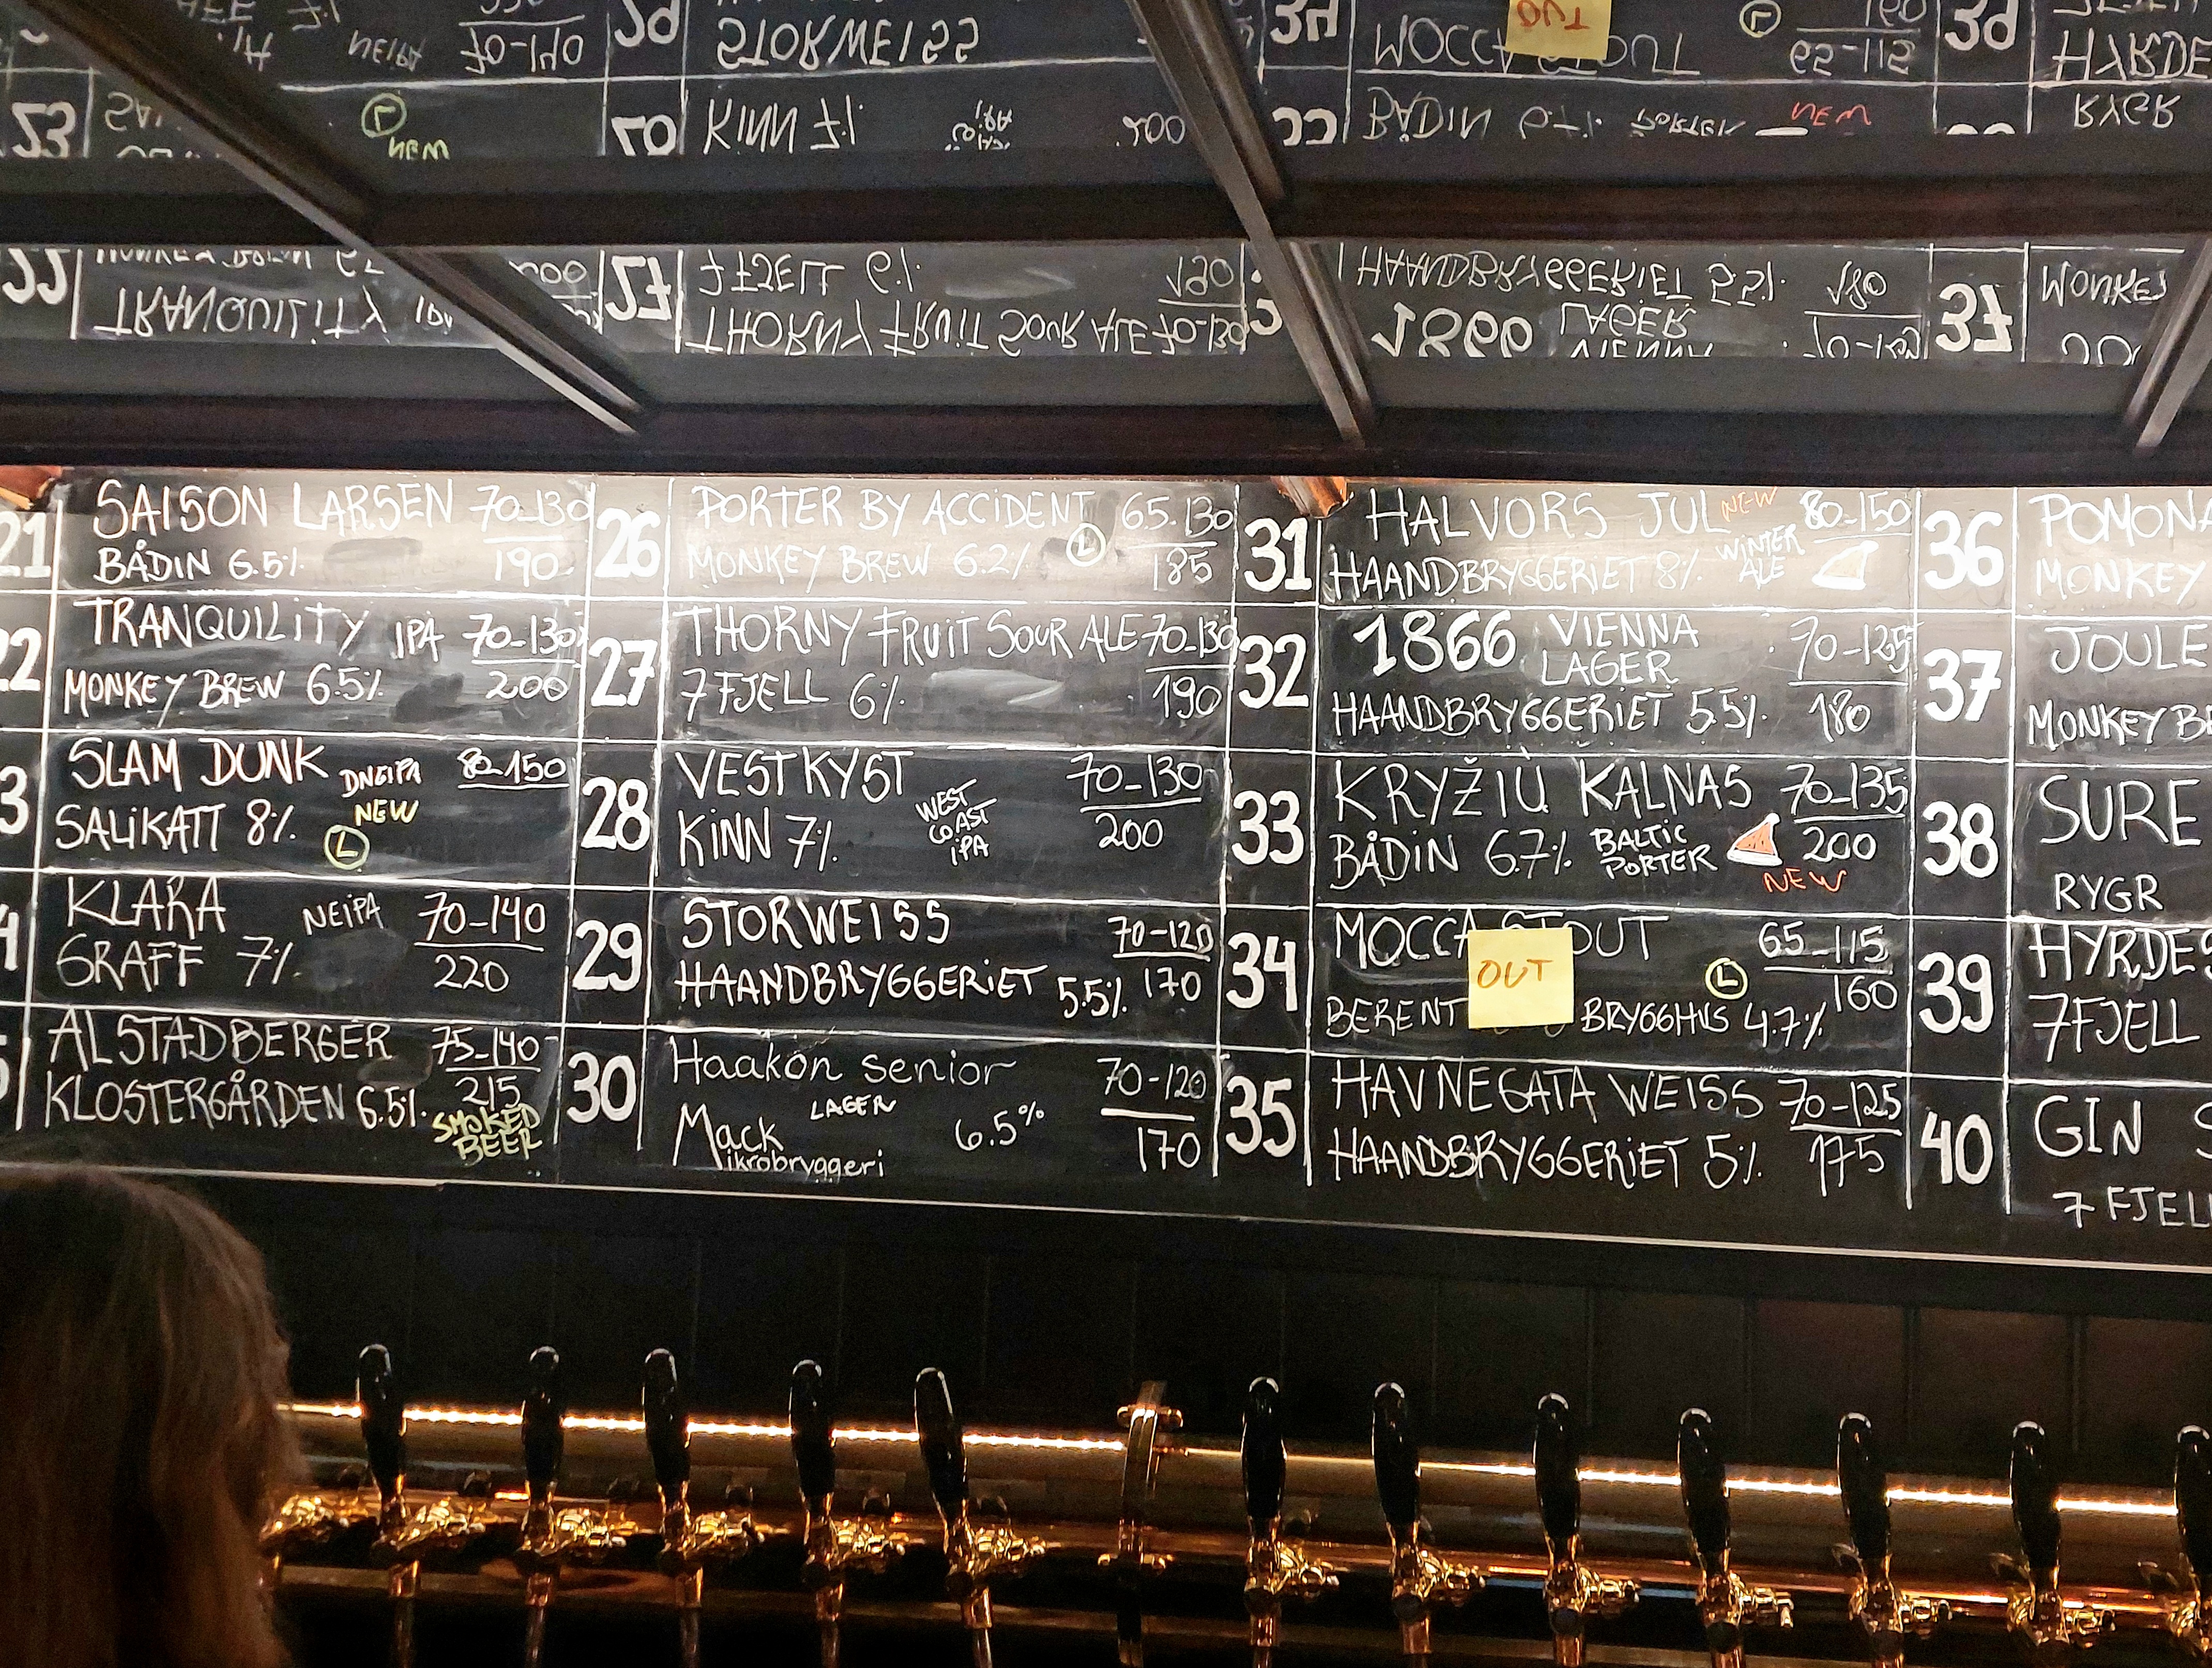 21
SAISON LARSEN 70-130
BÅDIN 6.5% 190
22
TRANQUILITY IPA 70-130
MONKEY BREW 6.5% 200
3
SLAM DUNK DNEIPA 80-150
SALIKATT 8% NEW
L
4
KLARA NEIPA 70-140
GRAFF 7% 220
5
ALSTADBERGER 75-140
KLOSTERGÅRDEN 6.5% 215
SMOKED
BEER
26
PORTER BY ACCIDENT 65-130
MONKEY BREW 6.2% L 185
27
THORNY FRUIT SOUR ALE 70-130
7 FJELL 6% 190
28
VESTKYST 70-130
KINN 7% 200
WEST
COAST
IPA
29
STORWEISS 70-120
HAANDBRYGGERIET 5.5% 170
30
Haakon Senior 70-120
LAGER
Mack 6.5% 170
Mikrobryggeri
31
HALVORS JUL NEW 80-150
HAANDBRYGGERIET 8% WINTER
ALE
32
1866 VIENNA 70-125
LAGER
HAANDBRYGGERIET 5.5% 180
33
KRYŽIŲ KALNAS 70-135
BÅDIN 6.7% BALTIC
PORTER 200
NEW
34
MOCCA STOUT 65-115
OUT
L 160
BERENT BRYGGHUS 4.7%
35
HAVNEGATA WEISS 70-125
HAANDBRYGGERIET 5% 175
36
POMONA
MONKEY
37
JOULE
MONKEY B
38
SURE
RYGR
39
HYRDE
7 FJELL
40
GIN S
7 FJELL